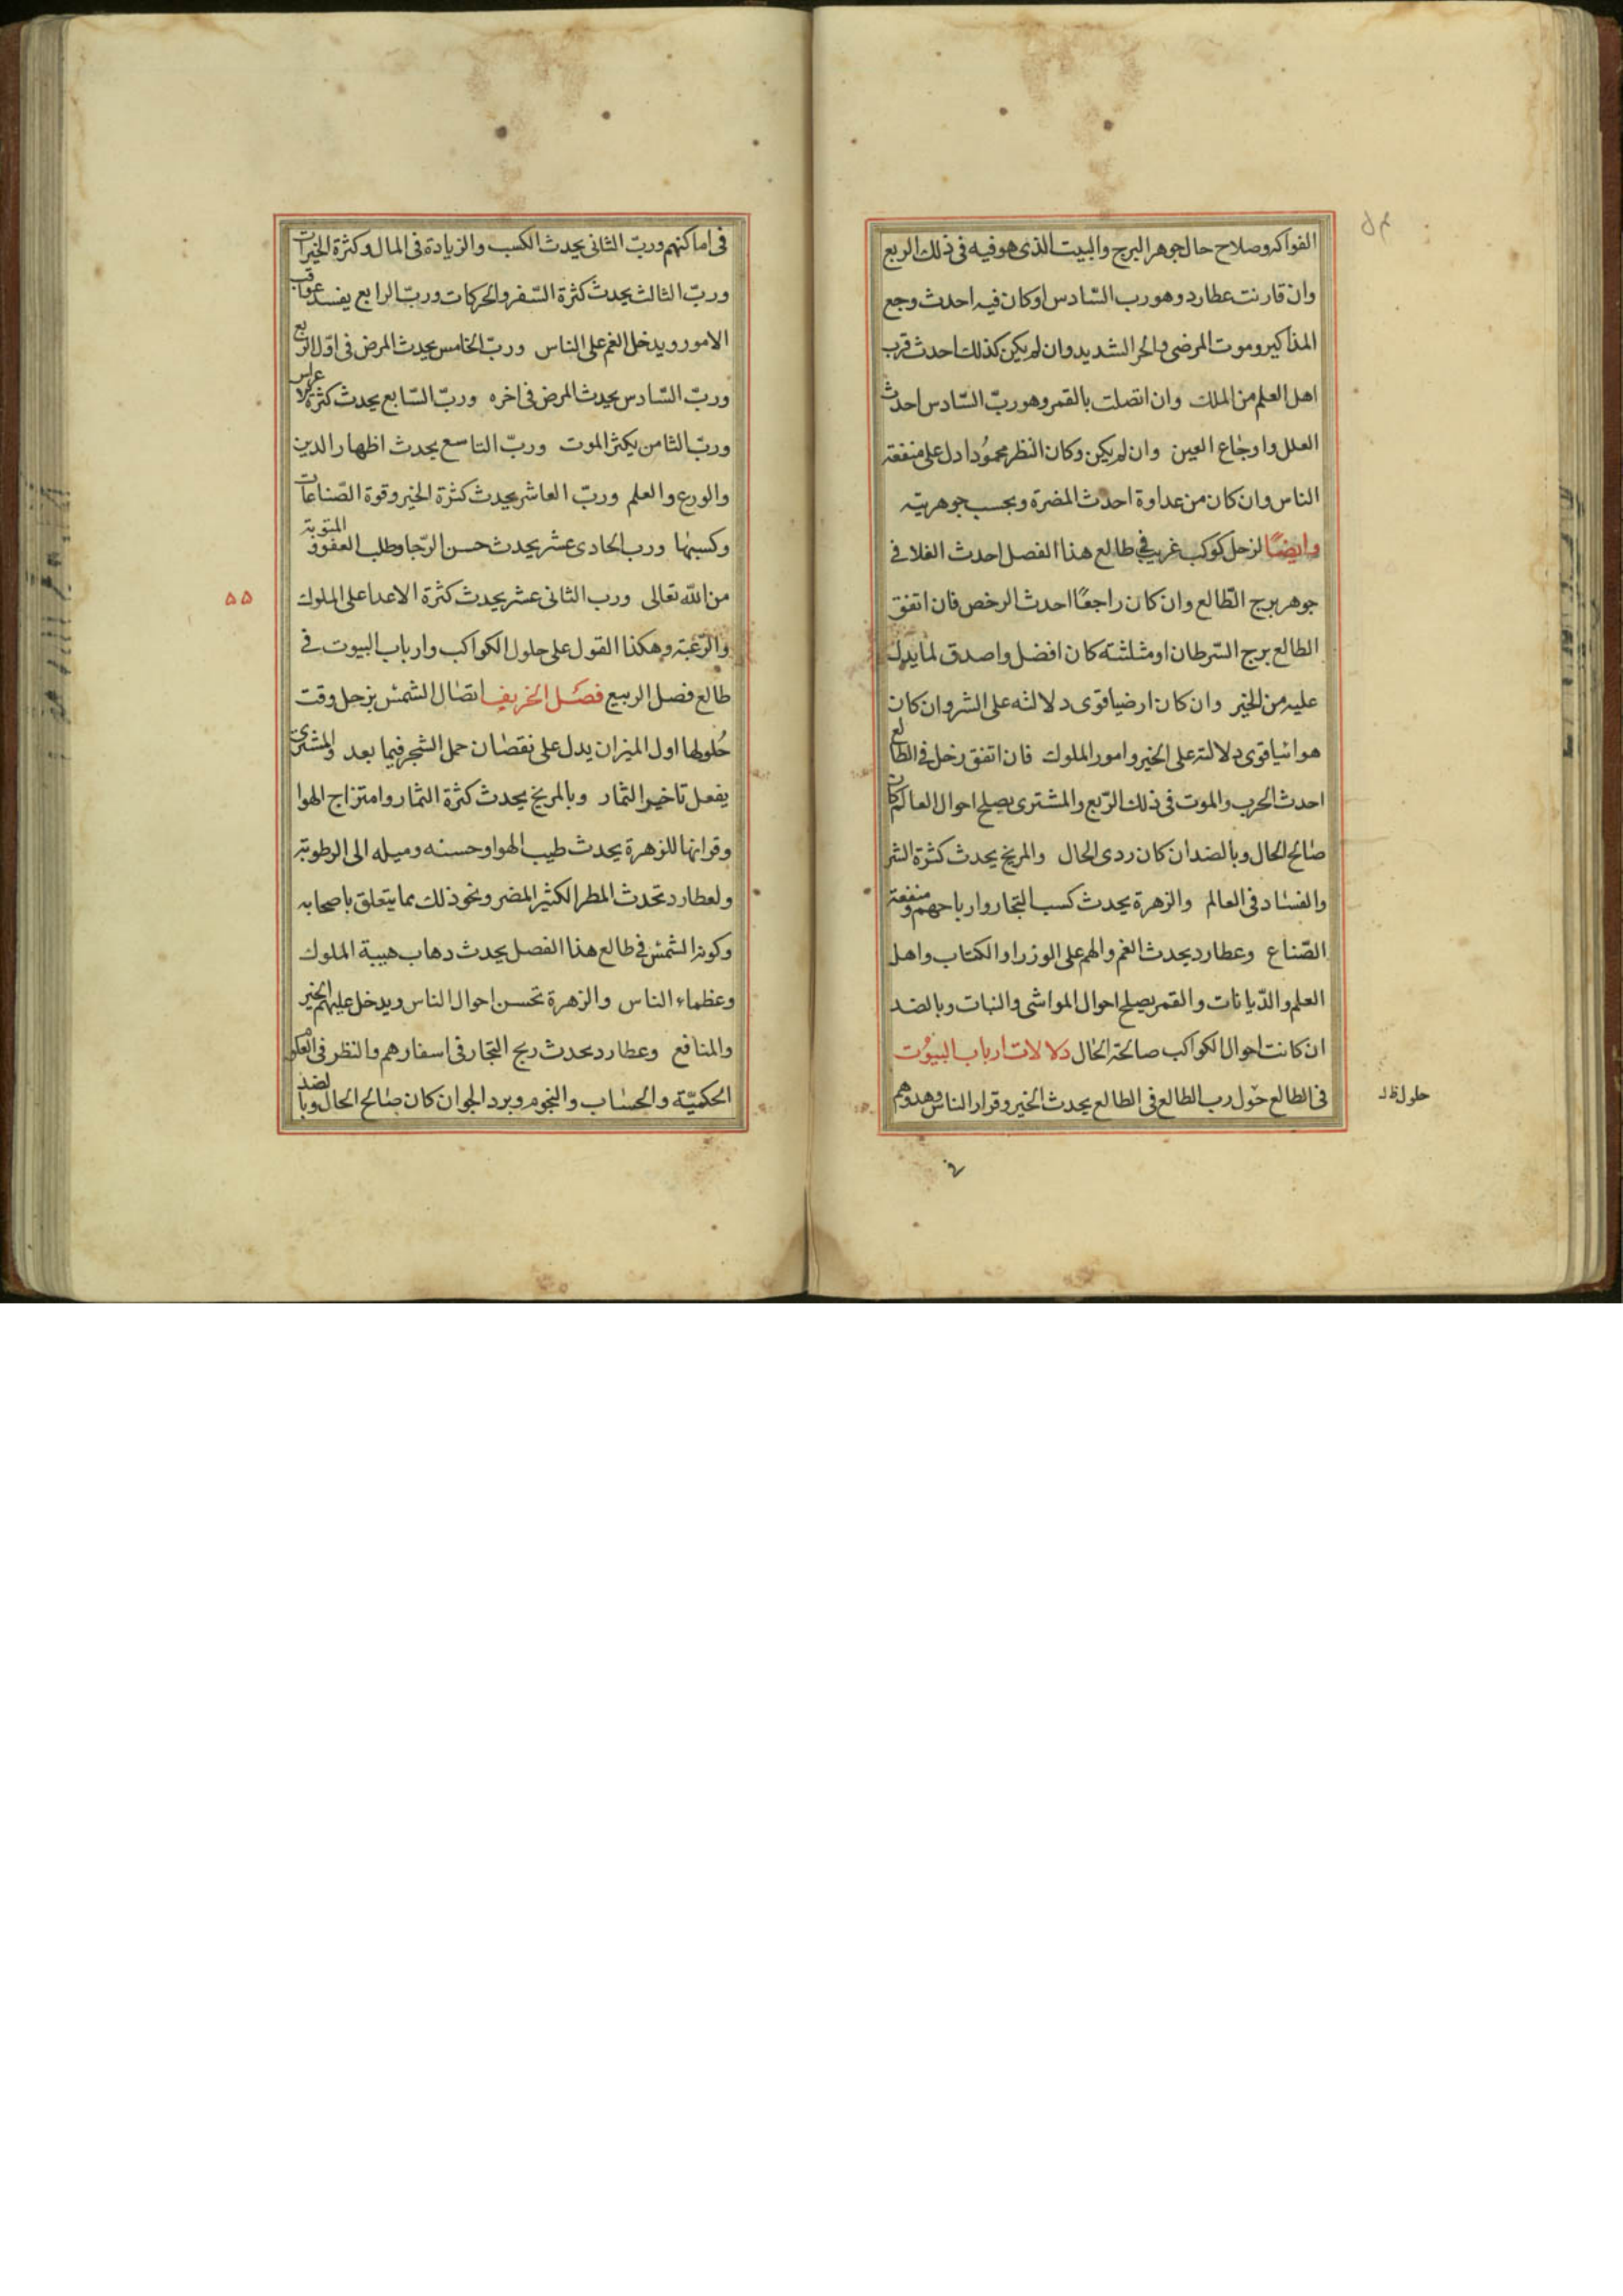 الفواكه وصلاح حال جوهر البرج والبيت الذى هو فيه فى ذلك الربع
وان قارنت عطارد وهو رب السّادس او كان فيه احدث وجع
المذاكير وموت المرضى والحر الشديد وان لم يكن كذلك احدث قرب
اهل العلم من الملك وان اتصلت بالقمر وهو ربّ السّادس احدث
العلل واوجاع العين وان لم يكن وكان النظر محمُودا دل على منفعة
الناس وان كان من عداوة احدث المضرة وبحسب جوهريته
وايضًا لزحل كوكب غريب فى طالع هذا الفصل احدث الغلا فى
جوهر برج الطّالع وان كان راجعًا احدث الرخص فان اتفق
الطالع برج السّرطان او مثلثته كان افضل واصدق لما يدل
عليه من الخير وان كان ارضيا قوى دلالته على الشر وان كان
هوائيا قوى دلالته على الخير وامور الملوك فان اتفق زحل فى الطالع
احدث الحرب والموت فى ذلك الرّبع والمشترى يصلح احوال العالم ان كان
صالح الحال وبالضد ان كان ردى الحال والمريخ يحدث كثرة الشر
والفساد فى العالم والزهرة يحدث كسب التجار وارباحهم ومنفعة
الصّناع وعطارد يحدث الغم والهم على الوزرا والكتاب واهل
العلم والدّيانات والقمر يصلح احوال المواشى والنبات وبالضد
ان كانت احوال الكواكب صالحة الحال دلالات ارباب البيُوت
فى الطالع حول رب الطالع فى الطالع يحدث الخير وقرار الناس وهدوهم
حلول ظ
فى اماكنهم وربّ الثانى يحدث الكسب والزيادة فى المال وكثرة الخيرات
وربّ الثالث يحدث كثرة السّفر والحركات وربّ الرابع يفسد عواقب
الامور ويدخل الغم على الناس وربّ الخامس يحدث المرض فى اوّل الربع
وربّ السّادس يحدث المرض فى اخره وربّ السّابع يحدث كثرة الاعراس
وربّ الثامن يكثر الموت وربّ التاسع يحدث اظهار الدين
والورع والعلم وربّ العاشر يحدث كثرة الخير وقوة الصّناعات
وكسبها ورب الحادى عشر يحدث حسن الرّجا وطلب العفو والتوبة
من الله تعالى ورب الثانى عشر يحدث كثرة الاعدا على الملوك
والرّغبة وهكذا القول على حلول الكواكب وارباب البيوت فى
طالع فصل الربيع فصَل الخريف اتصال الشمس بزحل وقت
حُلولها اول الميزان يدل على نقصان حمل الشجر فيما بعد والمشترى
يفعل تاخير الثمار وبالمريخ يحدث كثرة الثمار وامتزاج الهوا
وقرانها للزهرة يحدث طيب الهوا وحسنه وميله الى الرطوبة
ولعطارد تحدث المطر الكثير المضر ونحو ذلك مما يتعلق باصحابه
وكون الشمس فى طالع هذا الفصل يحدث دهاب هيبة الملوك
وعظماء الناس والزهرة تحسن احوال الناس ويدخل عليهم الخير
والمنافع وعطارد يحدث ربح التجار فى اسفارهم والنظر فى العلوم
الحكميّة والحساب والنجوم وبرد الجو ان كان صالح الحال وبالضد
۵۵